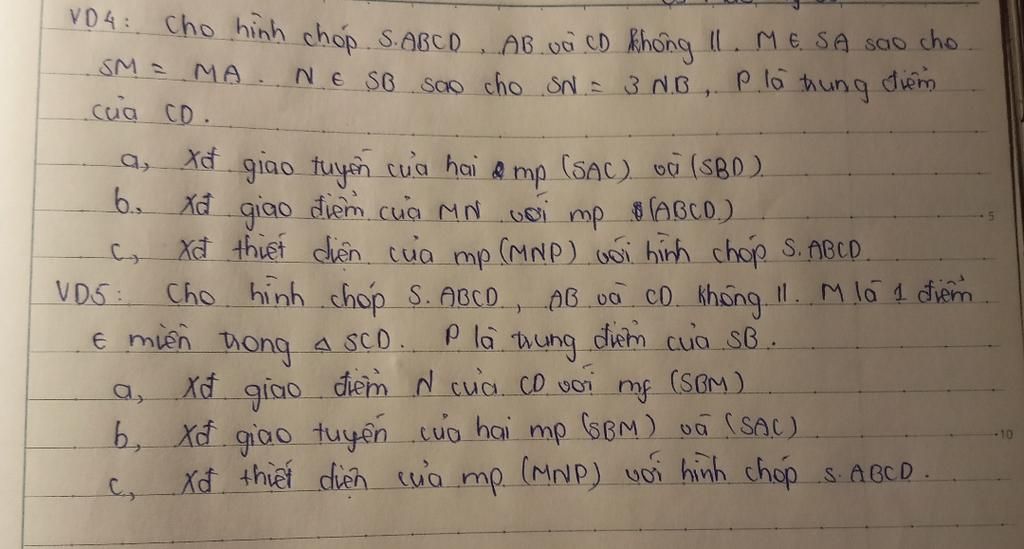 VD4: Cho hình chóp S.ABCD, AB và CD không //. M ∈ SA sao cho
SM = MA. N ∈ SB sao cho SN = 3NB, P là trung điểm
của CD.
a, Xđ giao tuyến của hai mp (SAC) và (SBD).
b, Xđ giao điểm của MN với mp (ABCD)
c, Xđ thiết diện của mp (MNP) với hình chóp S.ABCD.
VD5: Cho hình chóp S.ABCD, AB và CD không //. M là 1 điểm
∈ miền trong Δ SCD. P là trung điểm của SB.
a, Xđ giao điểm N của CD với mp (SBM)
b, Xđ giao tuyến của hai mp (SBM) và (SAC)
c, Xđ thiết diện của mp (MNP) với hình chóp S.ABCD.